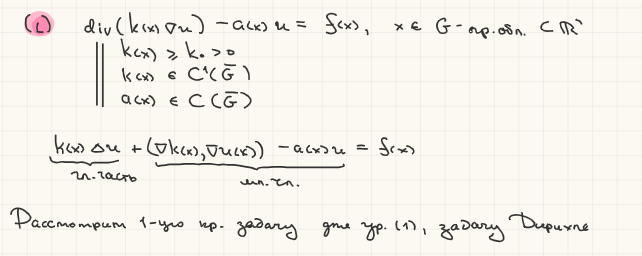 (1) div(k(x)∇u) - a(x)u = f(x), x ∈ G - огр. обл. ⊂ ℝⁿ
k(x) ≥ k₀ > 0
k(x) ∈ C¹(G̅)
a(x) ∈ C(G̅)
k(x)Δu + (∇k(x), ∇u(x)) - a(x)u = f(x)
гл. часть мл. чл.
Рассмотрим 1-ую кр. задачу для ур. (1), задачу Дирихле